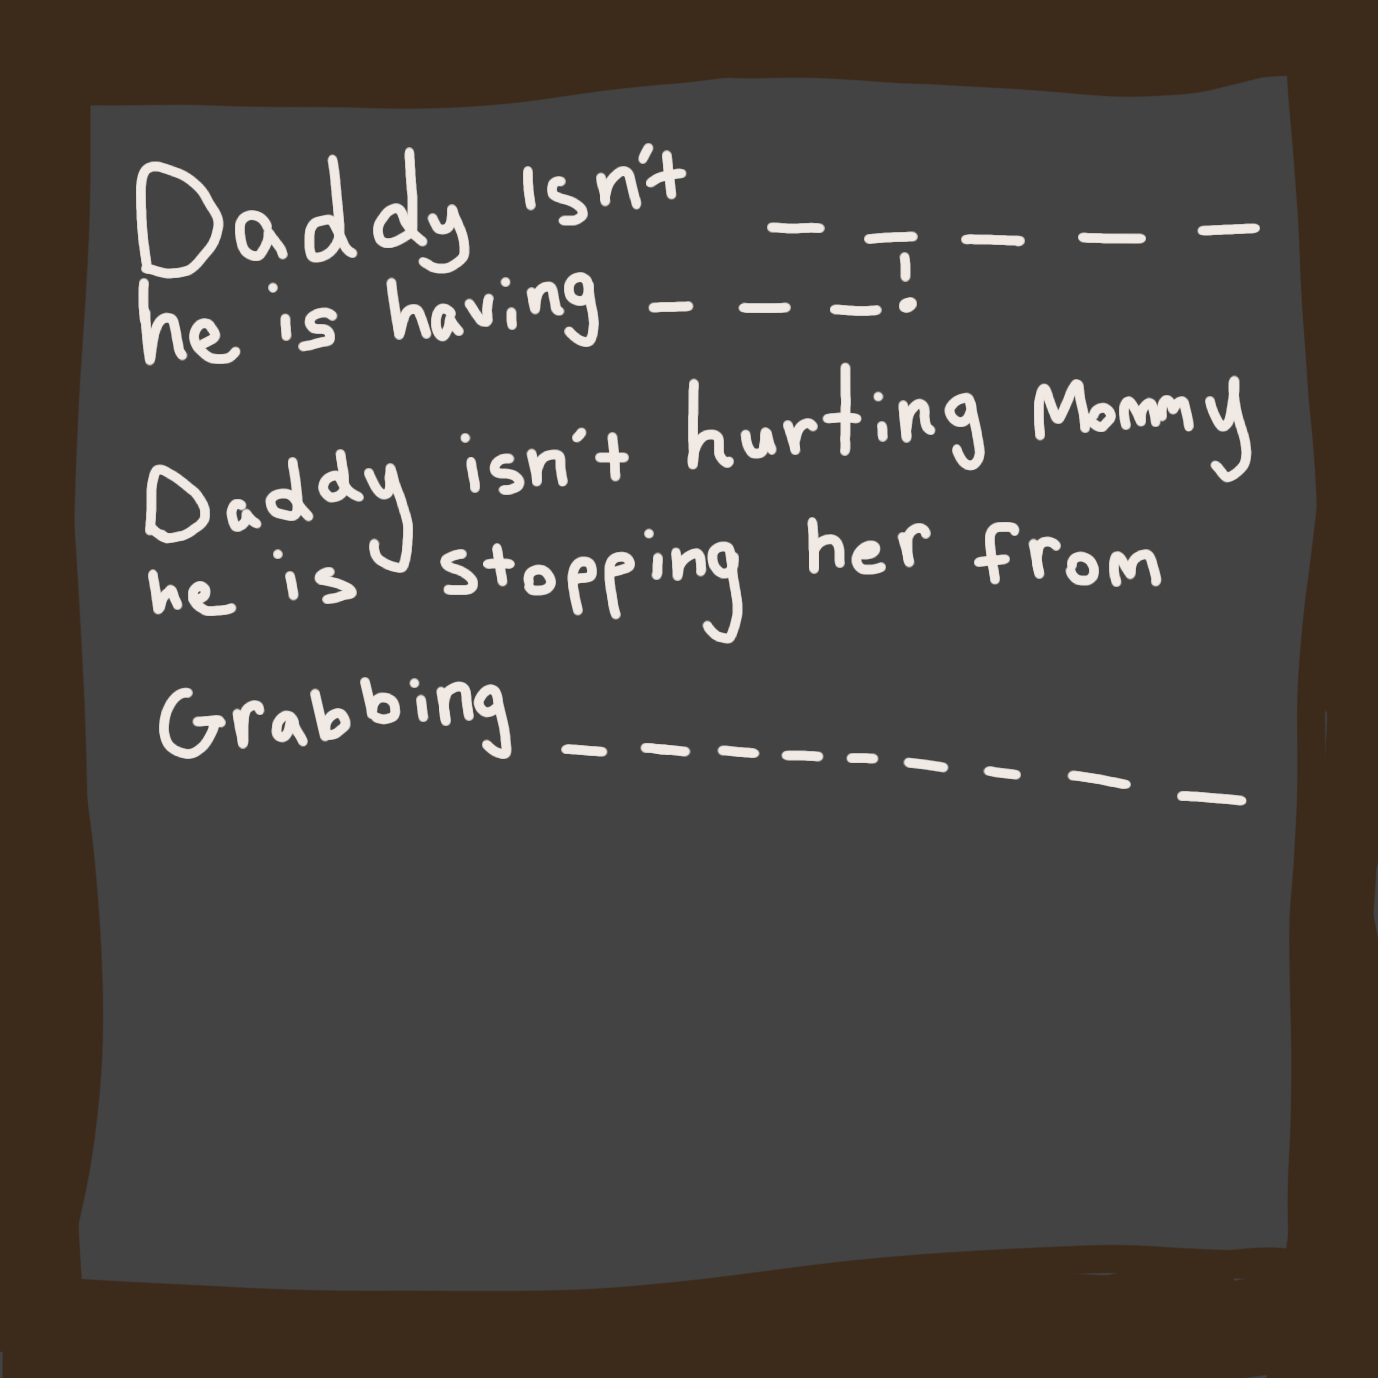 Daddy isn't _ _ _ _ _
he is having _ _ _!
Daddy isn't hurting Mommy
he is stopping her from
Grabbing _ _ _ _ _ _ _ _ _